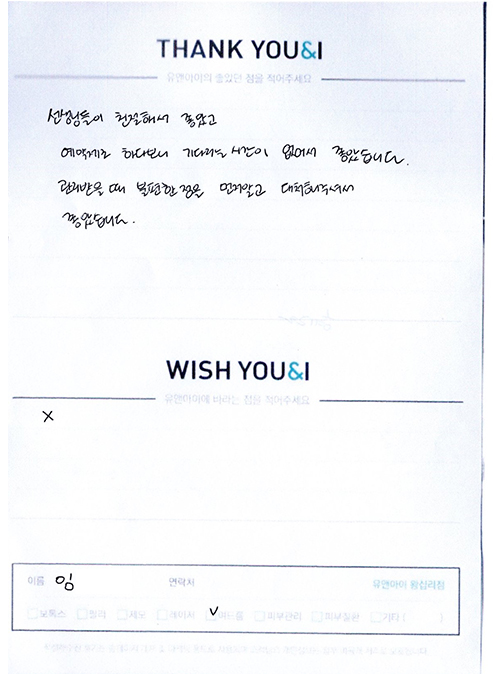 THANK YOU&I
유앤아이의 좋았던 점을 적어주세요
선생님들이 친절해서 좋았고
예약제로 하다보니 기다리는 시간이 없어서 좋았습니다.
관리받을 때 불편한 점을 먼저알고 대처해주셔서
좋았습니다.
WISH YOU&I
유앤아이에 바라는 점을 적어주세요
X
이름 임 연락처 유앤아이 왕십리점
보톡스 필러 제모 레이저 V 여드름 피부관리 피부질환 기타 ( )